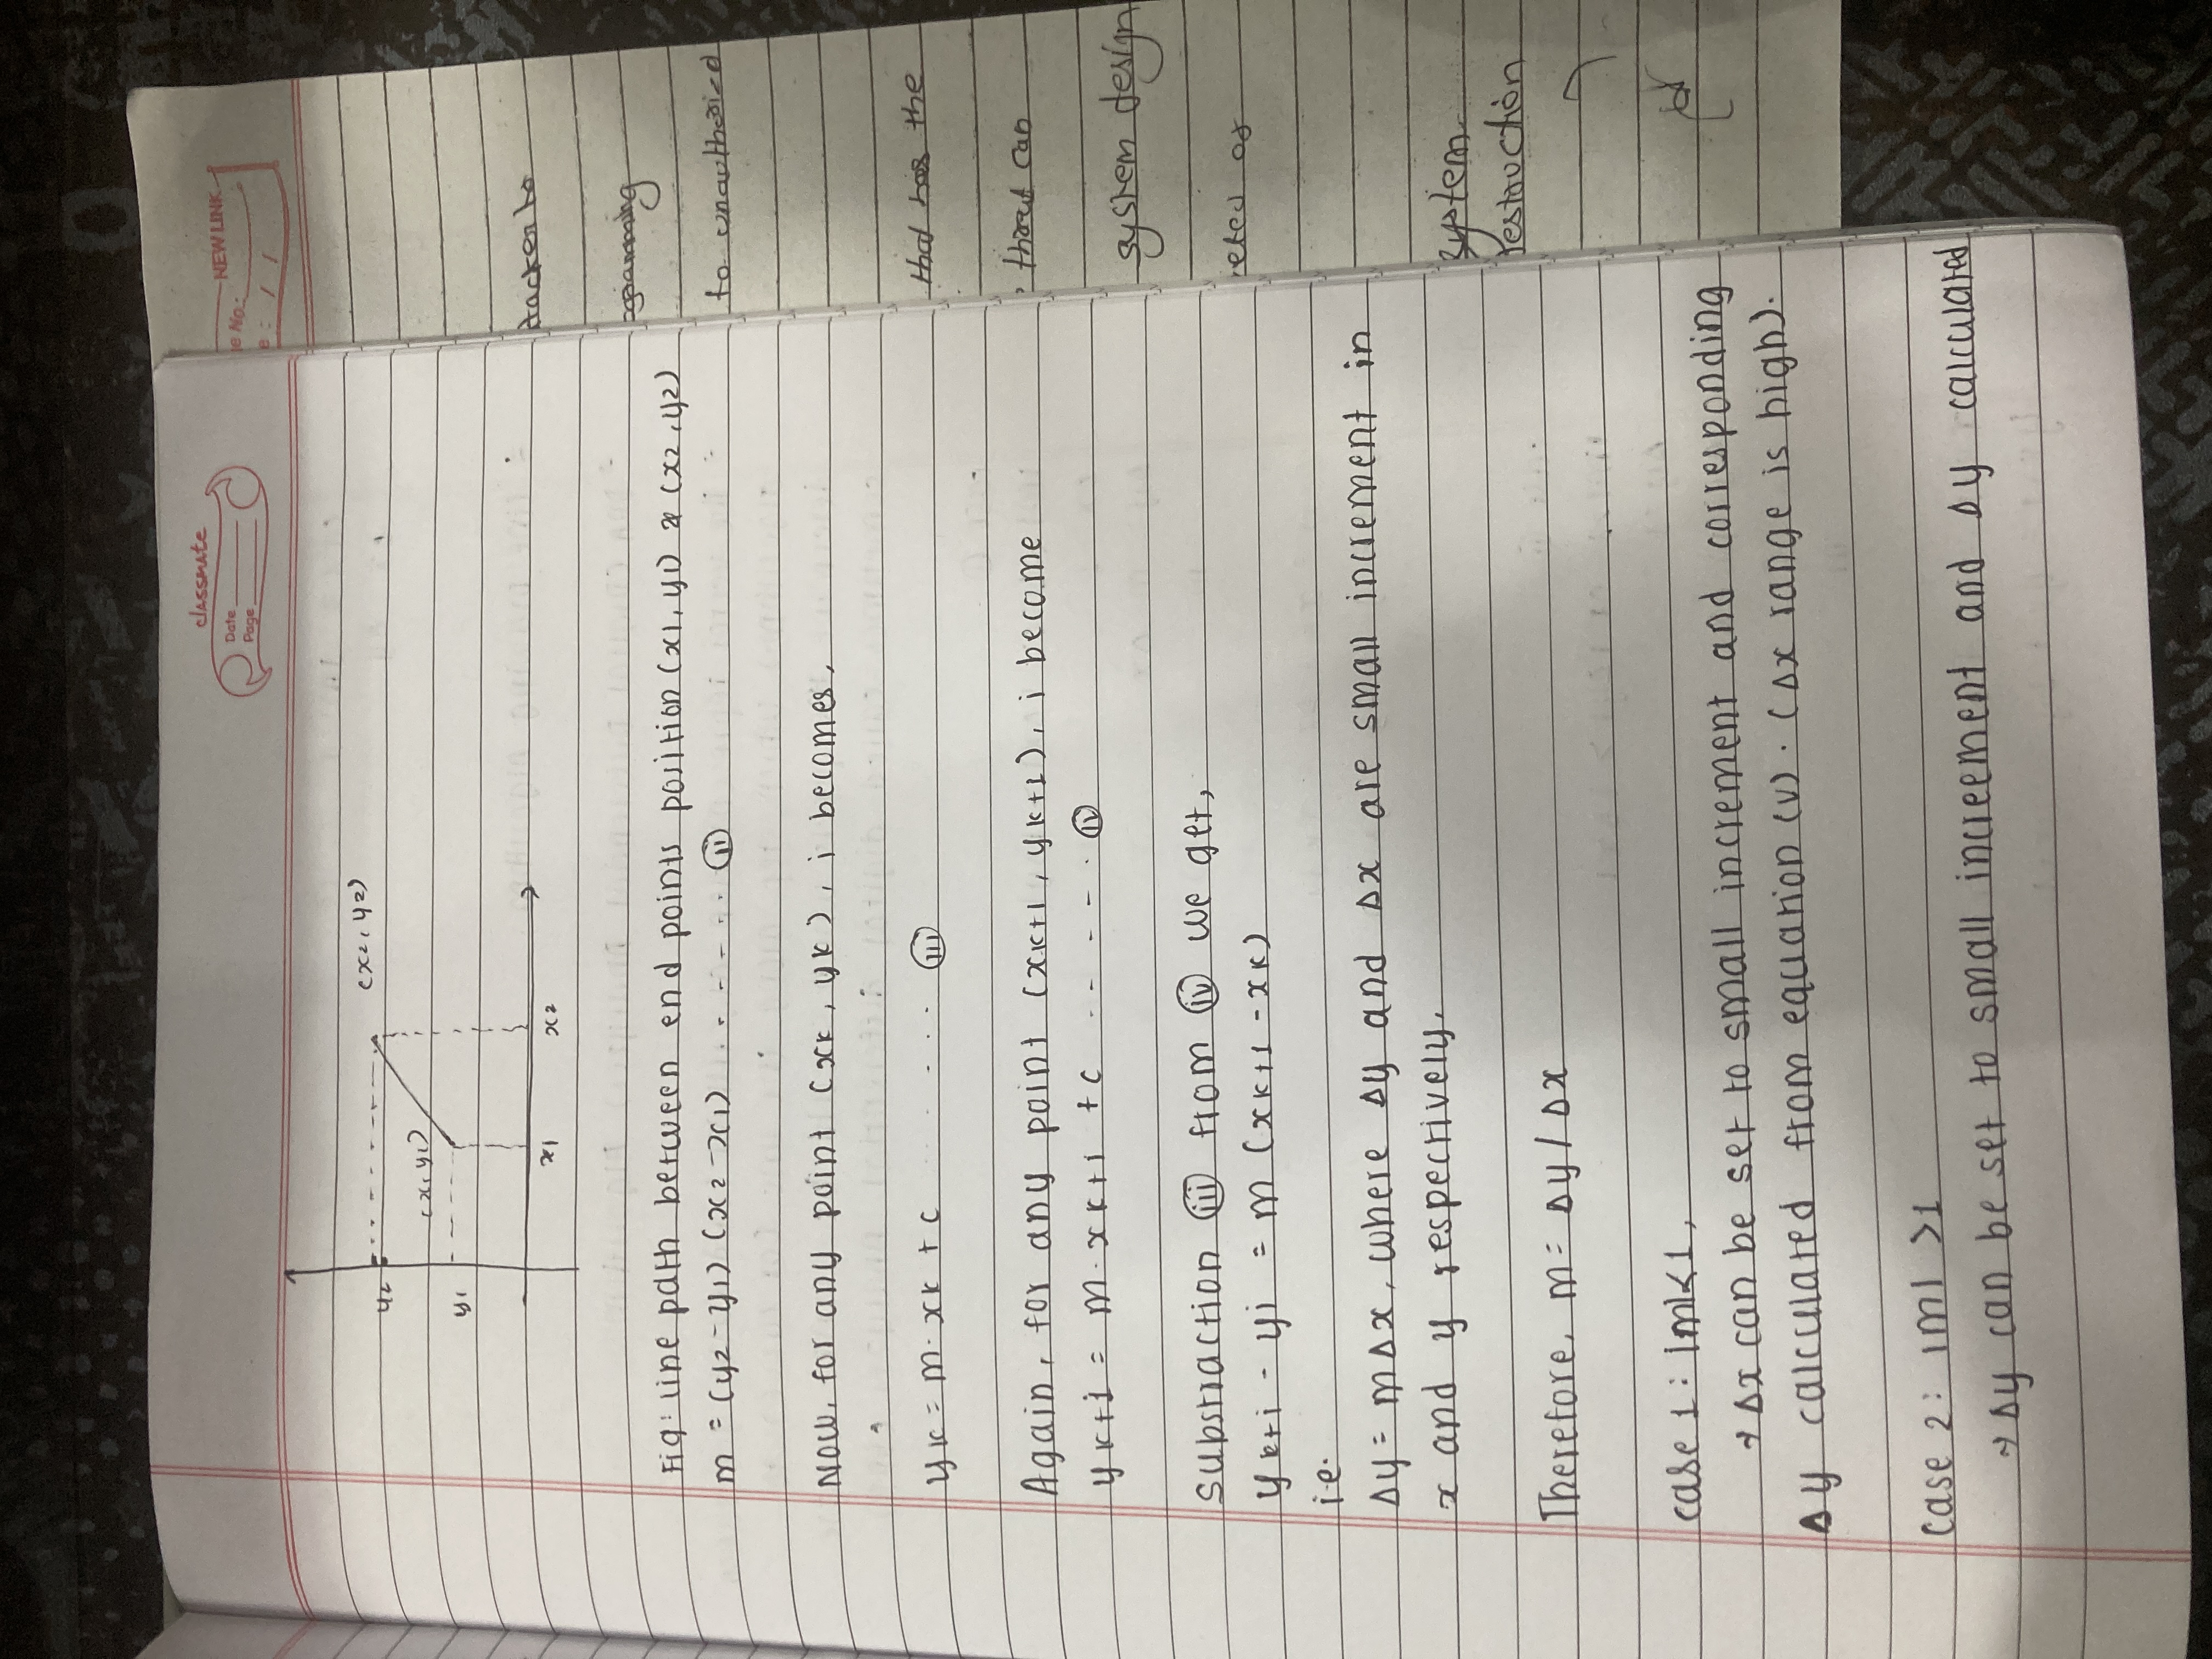 classmate
Date
Page
NEW LINK
e No.:
e : / /
(x2, y2)
y2
(x1, y1)
y1
x1
x2
Fig: line path between end points position (x1, y1) & (x2, y2)
m = (y2-y1) (x2-x1) ------ (ii)
Now, for any point (xk, yk), i becomes,
yk = m. xk + c ...... (iii)
Again, for any point (xk+1, yk+1), i become
yk+1 = m. xk+1 + c ------ (iv)
substraction (iii) from (iv) we get,
yk+i - yi = m (xk+1 - xk)
i.e.
Δy = mΔx, where Δy and Δx are small increment in
x and y respectively.
Therefore, m = Δy / Δx
case 1: |m|<1,
→ Δx can be set to small increment and corresponding
Δy calculated from equation (v). (Δx range is high).
case 2: |m| >1
→ Δy can be set to small increement and Δy calculated
ttacker to
ogramming
to unauthorized
that has the
can
system design
eted of
system
restruction